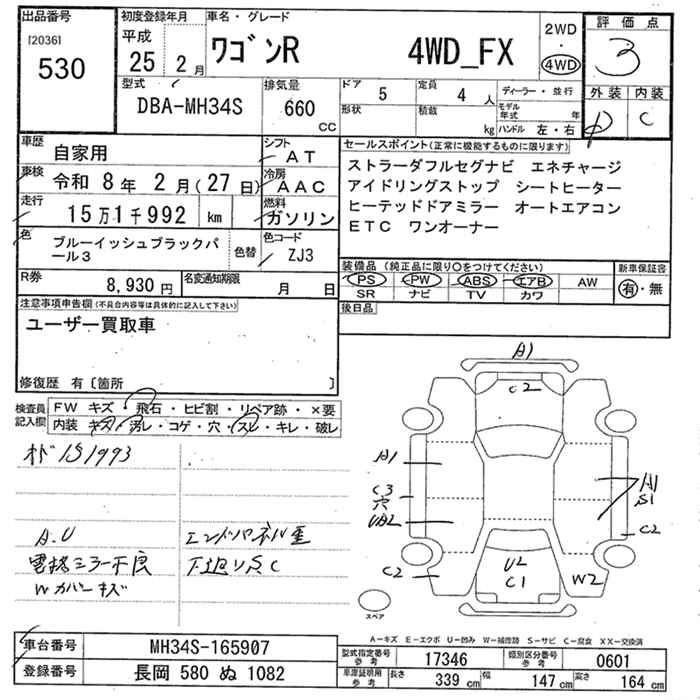 出品番号
[2036]
530
初度登録年月
平成
25 2月
車名・グレード
ワゴンR 4WD_FX
2WD
・
4WD
評価点
3
外装 内装
D C
型式
DBA-MH34S
排気量
660
CC
ドア 5
形状
定員 4 人
積載 kg
ディーラー・並行
モデル年式 年
ハンドル 左・右
車歴 自家用
シフト AT
車検 令和 8年 2月(27日)
冷房 AAC
走行 15万1千992 km
燃料 ガソリン
色 ブルーイッシュブラックパール3
色替
色コード ZJ3
R券 8,930円
名変通知期限 月 日
セールスポイント(正常に機能するものに限ります)
ストラーダフルセグナビ エネチャージ
アイドリングストップ シートヒーター
ヒーテッドドアミラー オートエアコン
ETC ワンオーナー
装備品(純正品に限り○をつけてください)
PS PW ABS エアB AW
SR ナビ TV カワ
新車保証書
有・無
後日品
注意事項申告欄(不具合内容等は具体的に記入して下さい)
ユーザー買取車
修復歴 有〔箇所 〕
検査員記入欄
FW キズ・飛石・ヒビ割・リペア跡・×要
内装 キズ・汚レ・コゲ・穴・スレ・キレ・破レ
151993
A.U
電格ミラー不良
Wカバーキズ
エンドパネル歪
下廻りSC
A1
C2
A1
C3
穴
UA2
C2
A1
S1
C2
U2
C1
W2
スペア
A-キズ E-エクボ U-凹み W-補修跡 S-サビ C-腐食 XX-交換済
車台番号 MH34S-165907
登録番号 長岡 580 ぬ 1082
型式指定番号 参考 17346
類別区分番号 参考 0601
車庫証明用 参考 長さ 339 cm 幅 147 cm 高さ 164 cm